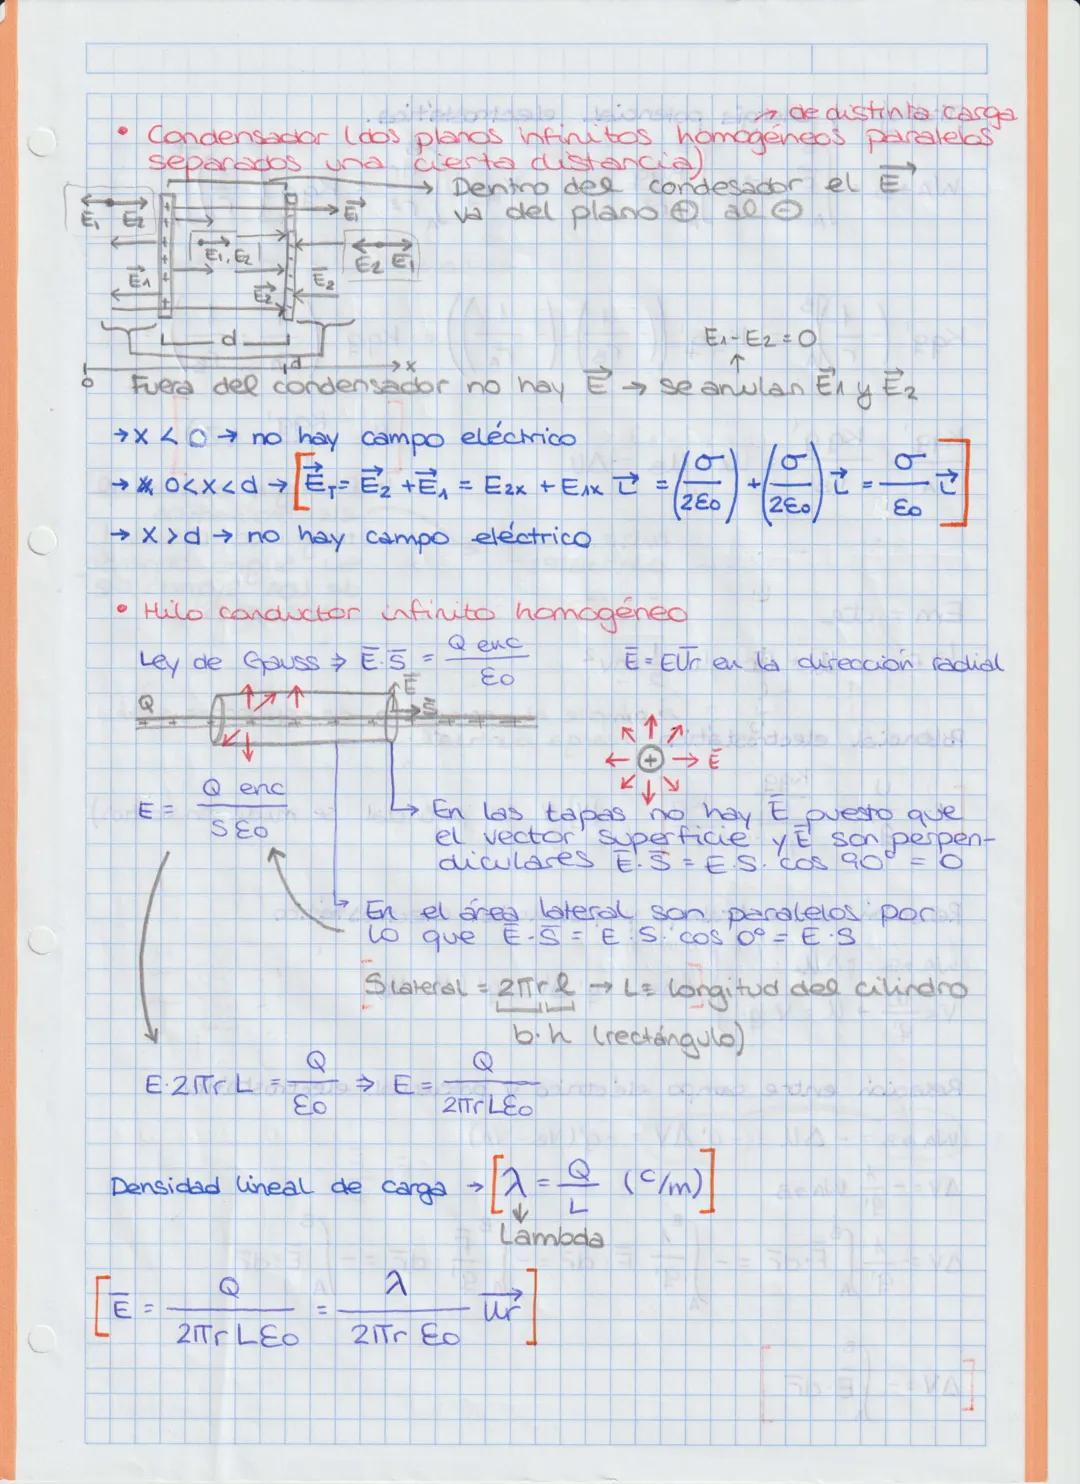 → de distinta carga
• Condensador (dos planos infinitos homogéneos paralelos
separados una cierta distancia)
→ Dentro del condesador el E⃗
va del plano ⊕ al ⊖
E₁ E₂
E⃗₁
E⃗₁, E⃗₂
E₂ E₁
E⃗₁
E⃗₂
E₂
d
0 d x
E₁-E₂=0
↑
Fuera del condensador no hay E⃗ → se anulan E⃗₁ y E⃗₂
→ x < 0 → no hay campo eléctrico
→ 0<x<d → [E⃗T = E⃗₂ + E⃗₁ = E₂x + E₁x i⃗ = (σ/2ε₀) + (σ/2ε₀) i⃗ = σ/ε₀ i⃗]
→ x > d → no hay campo eléctrico
• Hilo conductor infinito homogéneo
Ley de Gauss ⇒ E̅·S̅ = Q enc/ε₀ E̅ = EU̅r en la dirección radial
Q E̅ S̅
+ → E̅
E = Q enc/Sε₀
→ En las tapas no hay E̅ puesto que
el vector superficie y E̅ son perpen-
diculares E̅·S̅ = E·S·cos 90° = 0
→ En el área lateral son paralelos por
lo que E̅·S̅ = E·S·cos 0° = E·S
Slateral = 2πrl → L ≡ longitud del cilindro
b·h (rectángulo)
E·2πrL = Q/ε₀ ⇒ E = Q/2πrLε₀
Densidad lineal de carga → [λ = Q/L (C/m)]
↓
Lambda
[E̅ = Q/2πrLε₀ = λ/2πrε₀ u⃗r]